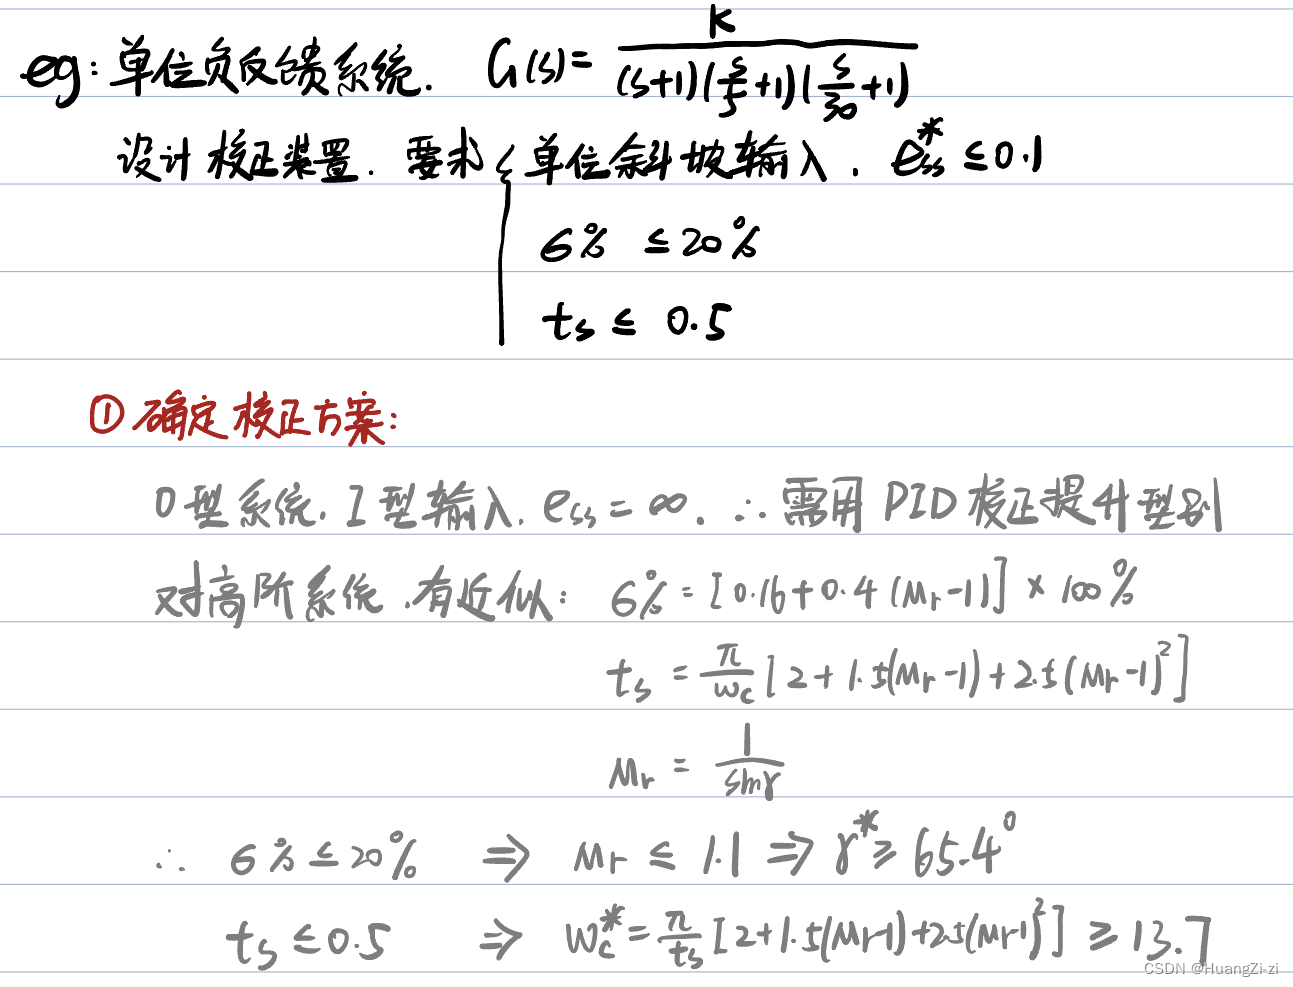 eg: 单位负反馈系统. G(s)= K / (s+1)(s/5+1)(s/30+1)
设计校正装置. 要求 { 单位斜坡输入. e*ss ≤0.1
σ% ≤20%
ts ≤ 0.5
① 确定校正方案:
0型系统. I型输入. ess=∞. ∴需用PID校正提升型别
对高阶系统.有近似: σ% = [0.16+0.4(Mr-1)] × 100%
ts = π/ωc [2+1.5(Mr-1)+2.5(Mr-1)²]
Mr = 1/sinγ
∴ σ% ≤20% ⇒ Mr ≤ 1.1 ⇒ γ* ≥ 65.4°
ts ≤0.5 ⇒ ωc* = π/ts [2+1.5(Mr-1)+2.5(Mr-1)²] ≥ 13.7
CSDN @HuangZi-zi